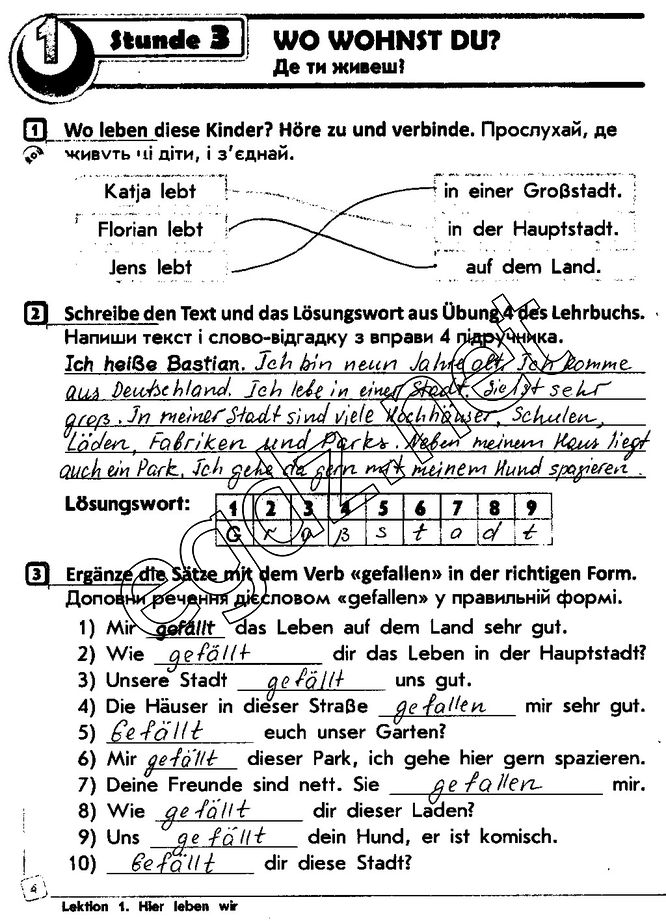 1 Stunde 3 WO WOHNST DU?
Де ти живеш?
1 Wo leben diese Kinder? Höre zu und verbinde. Прослухай, де
живуть ці діти, і з'єднай.
Katja lebt in einer Großstadt.
Florian lebt in der Hauptstadt.
Jens lebt auf dem Land.
2 Schreibe den Text und das Lösungswort aus Übung 4 des Lehrbuchs.
Напиши текст і слово-відгадку з вправи 4 підручника.
Ich heiße Bastian. Ich bin neun Jahre alt. Ich komme
aus Deutschland. Ich lebe in einer Stadt. Sie ist sehr
groß. In meiner Stadt sind viele Hochhäuser, Schulen,
Läden, Fabriken und Parks. Neben meinem Haus liegt
auch ein Park. Ich gehe da gern mit meinem Hund spazieren.
Lösungswort: 1 2 3 4 5 6 7 8 9
G r o ß s t a d t
3 Ergänze die Sätze mit dem Verb «gefallen» in der richtigen Form.
Доповни речення дієсловом «gefallen» у правильній формі.
1) Mir gefällt das Leben auf dem Land sehr gut.
2) Wie gefällt dir das Leben in der Hauptstadt?
3) Unsere Stadt gefällt uns gut.
4) Die Häuser in dieser Straße gefallen mir sehr gut.
5) Gefällt euch unser Garten?
6) Mir gefällt dieser Park, ich gehe hier gern spazieren.
7) Deine Freunde sind nett. Sie gefallen mir.
8) Wie gefällt dir dieser Laden?
9) Uns gefällt dein Hund, er ist komisch.
10) Gefällt dir diese Stadt?
4
Lektion 1. Hier leben wir
egdz.net